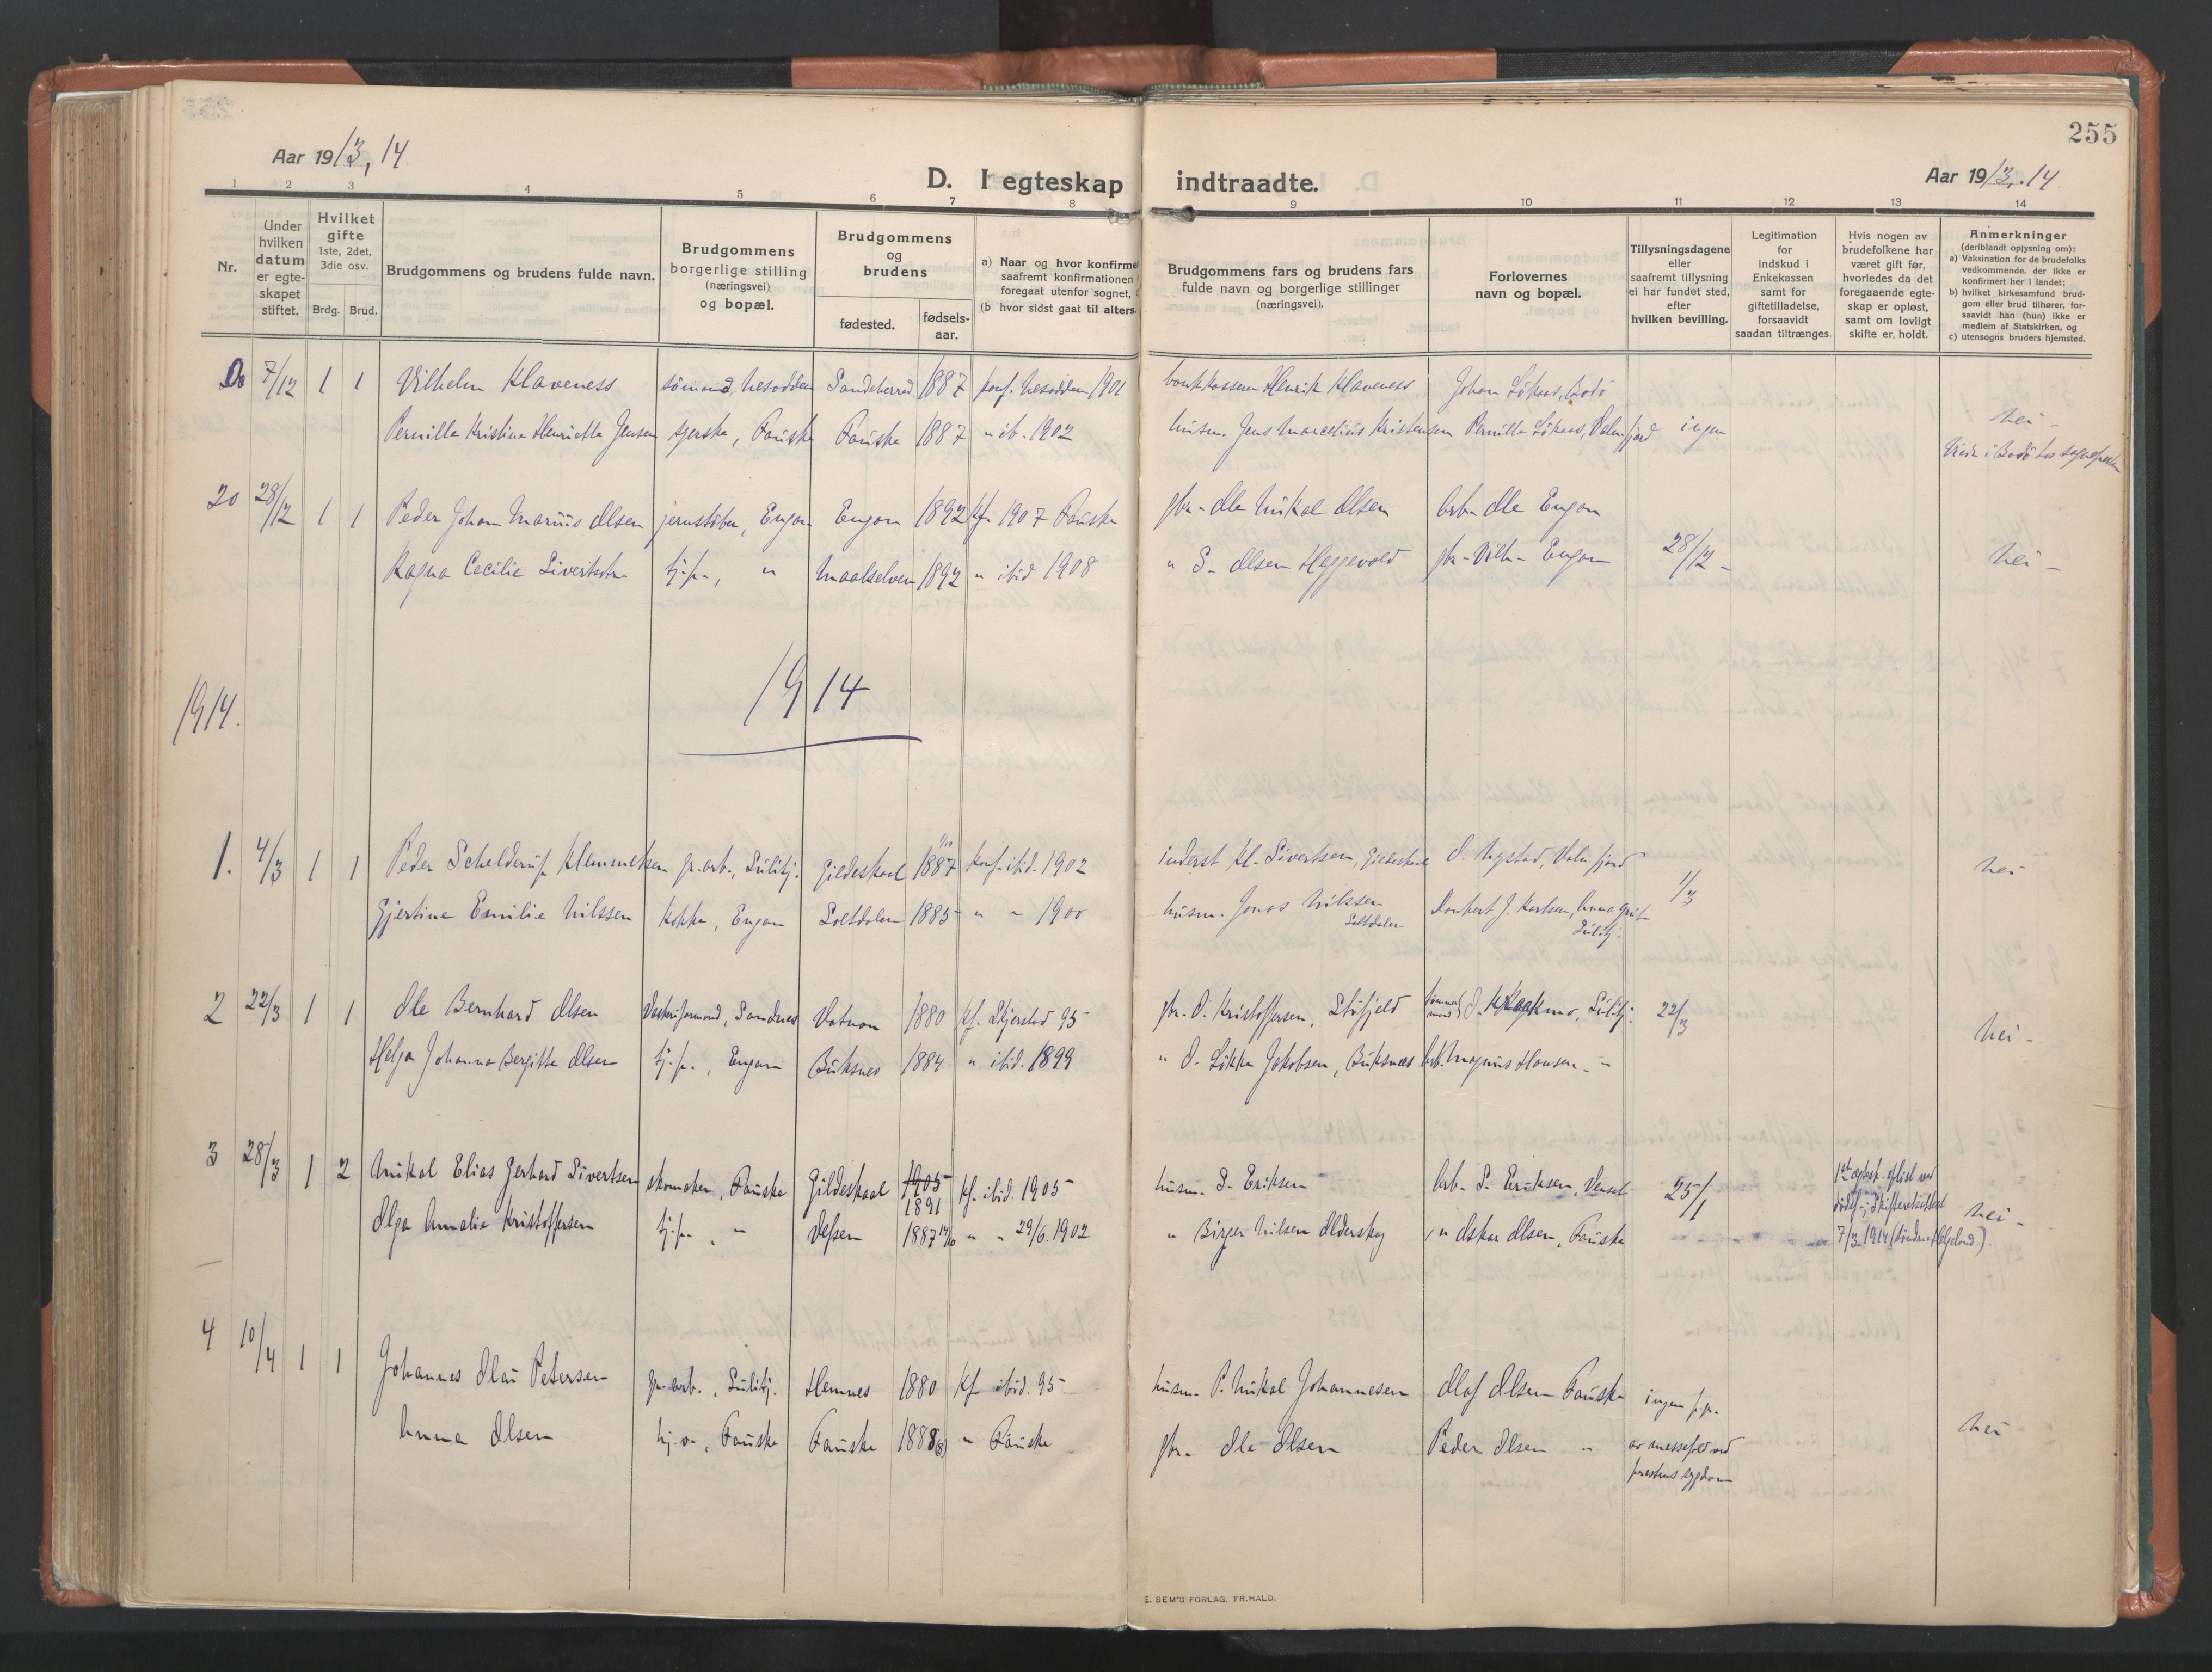 255
Aar 1913, 14
Aar 1913, 14
D. I egteskap indtraadte.
1 2 3 4 5 6 7 8 9 10 11 12 13 14
Nr.
Under
hvilken
datum
er egte-
skapet
stiftet.
Hvilket
gifte
1ste, 2det,
3die osv.
Brdg. Brud.
Brudgommens og brudens fulde navn.
Brudgommens
borgerlige stilling
(næringsvei)
og bopæl.
Brudgommens
og
brudens
fødested.
fødsels-
aar.
a) Naar og hvor konfirme
saafremt konfirmationen
foregaat utenfor sognet,
(b hvor sidst gaat til alters
Brudgommens fars og brudens fars
fulde navn og borgerlige stillinger
(næringsvei).
Forlovernes
navn og bopæl.
Tillysningsdagene
eller
saafremt tillysning
ei har fundet sted,
efter
hvilken bevilling.
Legitimation
for
indskud i
Enkekassen
samt for
giftetilladelse,
forsaavidt
saadan tiltrænges.
Hvis nogen av
brudefolkene har
været gift før,
hvorledes da det
foregaaende egte-
skap er opløst,
samt om lovligt
skifte er holdt.
Anmerkninger
(deriblandt opıysning om):
a) Vaksination for de brudefolks
vedkommende, der ikke er
konfirmert her i landet;
b) hvilket kirkesamfund brud-
gom eller brud tilhører, for-
saavidt han (hun) ikke er
medlem af Statskirken, og
c) utensogns bruders hjemsted.
7/12 1 1 Vilhelm Klaveness sömand, Nesodden Sandeherred 1887 konf. Nesodden 1901 bankkasserer Henrik Klaveness Johan Lökaas, Bodö
Pernille Kristine Henriette Jensen syerske, Fauske Fauske 1887 " ib. 1902 husm. Jens Marcelius Kristensen Pernille Lökaas, Valnesfjord ingen nei -
Viede i Bodö hos sognepresten
20 28/12 1 1 Peder Johan Marius Olsen jernstöber, Engan Engan 1892 kf. 1907 Fauske gbr. Ole Mikal Olsen Arb. Ole Engan
Ragna Cecilie Sivertsdtr tj.p., " Maalselven 1892 " ibid 1908 " S. Olsen Heggevold gbr. Vilh. Engan 28/12 - nei -
1914.
1914
1. 4/3 1 1 Peder Schelderup Klemmetsen gr.arb., Sulitj. Gildeskaal 1887 konf. ibid. 1902 inderst Kl. Sivertsen, Gildeskaal O. Nystad, Valnesfjord nei
Gjertine Emilie Nilssen kokke, Engan Saltdalen 1885 " " 1900 husm. Jonas Nilssen Saltdalen J. Karlsen, Sulitj. 1/3
2 22/3 1 1 Ole Bernhard Olsen Vaskeriformand, Sandnes Vatnan 1880 kf. Skjerstad 95 gbr. O. Kristoffersen, Stöfjeld Kraakmo, Sulitj. 22/3
Helga Johanna Bergitte Olsen tj.p., Engan Buksnes 1884 " ibid. 1899 " O. Lökke Jakobsen, Buksnæs Arb. Magnus Hansen - " nei -
3 28/3 1 2 Mikal Elias Gerhard Sivertsen skomaker, Fauske Gildeskaal 1905 1891 kf. ibid. 1905 husm. S. Eriksen Arb. S. Eriksen, Venset 25/1
Olga Amalie Kristoffersen tj.p., " Vefsen 1887 14/10 " " 29/6. 1902 " Birger Nilsen Aldersky " Oskar Olsen, Fauske nei -
1ste egtesk. oplöst ved
dödsf.; Skifteretsattest
7/3 1914 (Söndre Helgeland.)
4 10/4 1 1 Johannes Olai Petersen gr.arb., Sulitj. Hemnes 1880 kf ibid. 95 husm. P. Mikal Johannesen Olaf Olsen Fauske
Anna Olsen hj.v., Fauske Fauske 1888 " Fauske gbr. Ole Olsen Peder Olsen " nei
ingen p.gr.
av messefald ved
prestens sygdom
E. SEM'S FORLAG, FR.HALD.